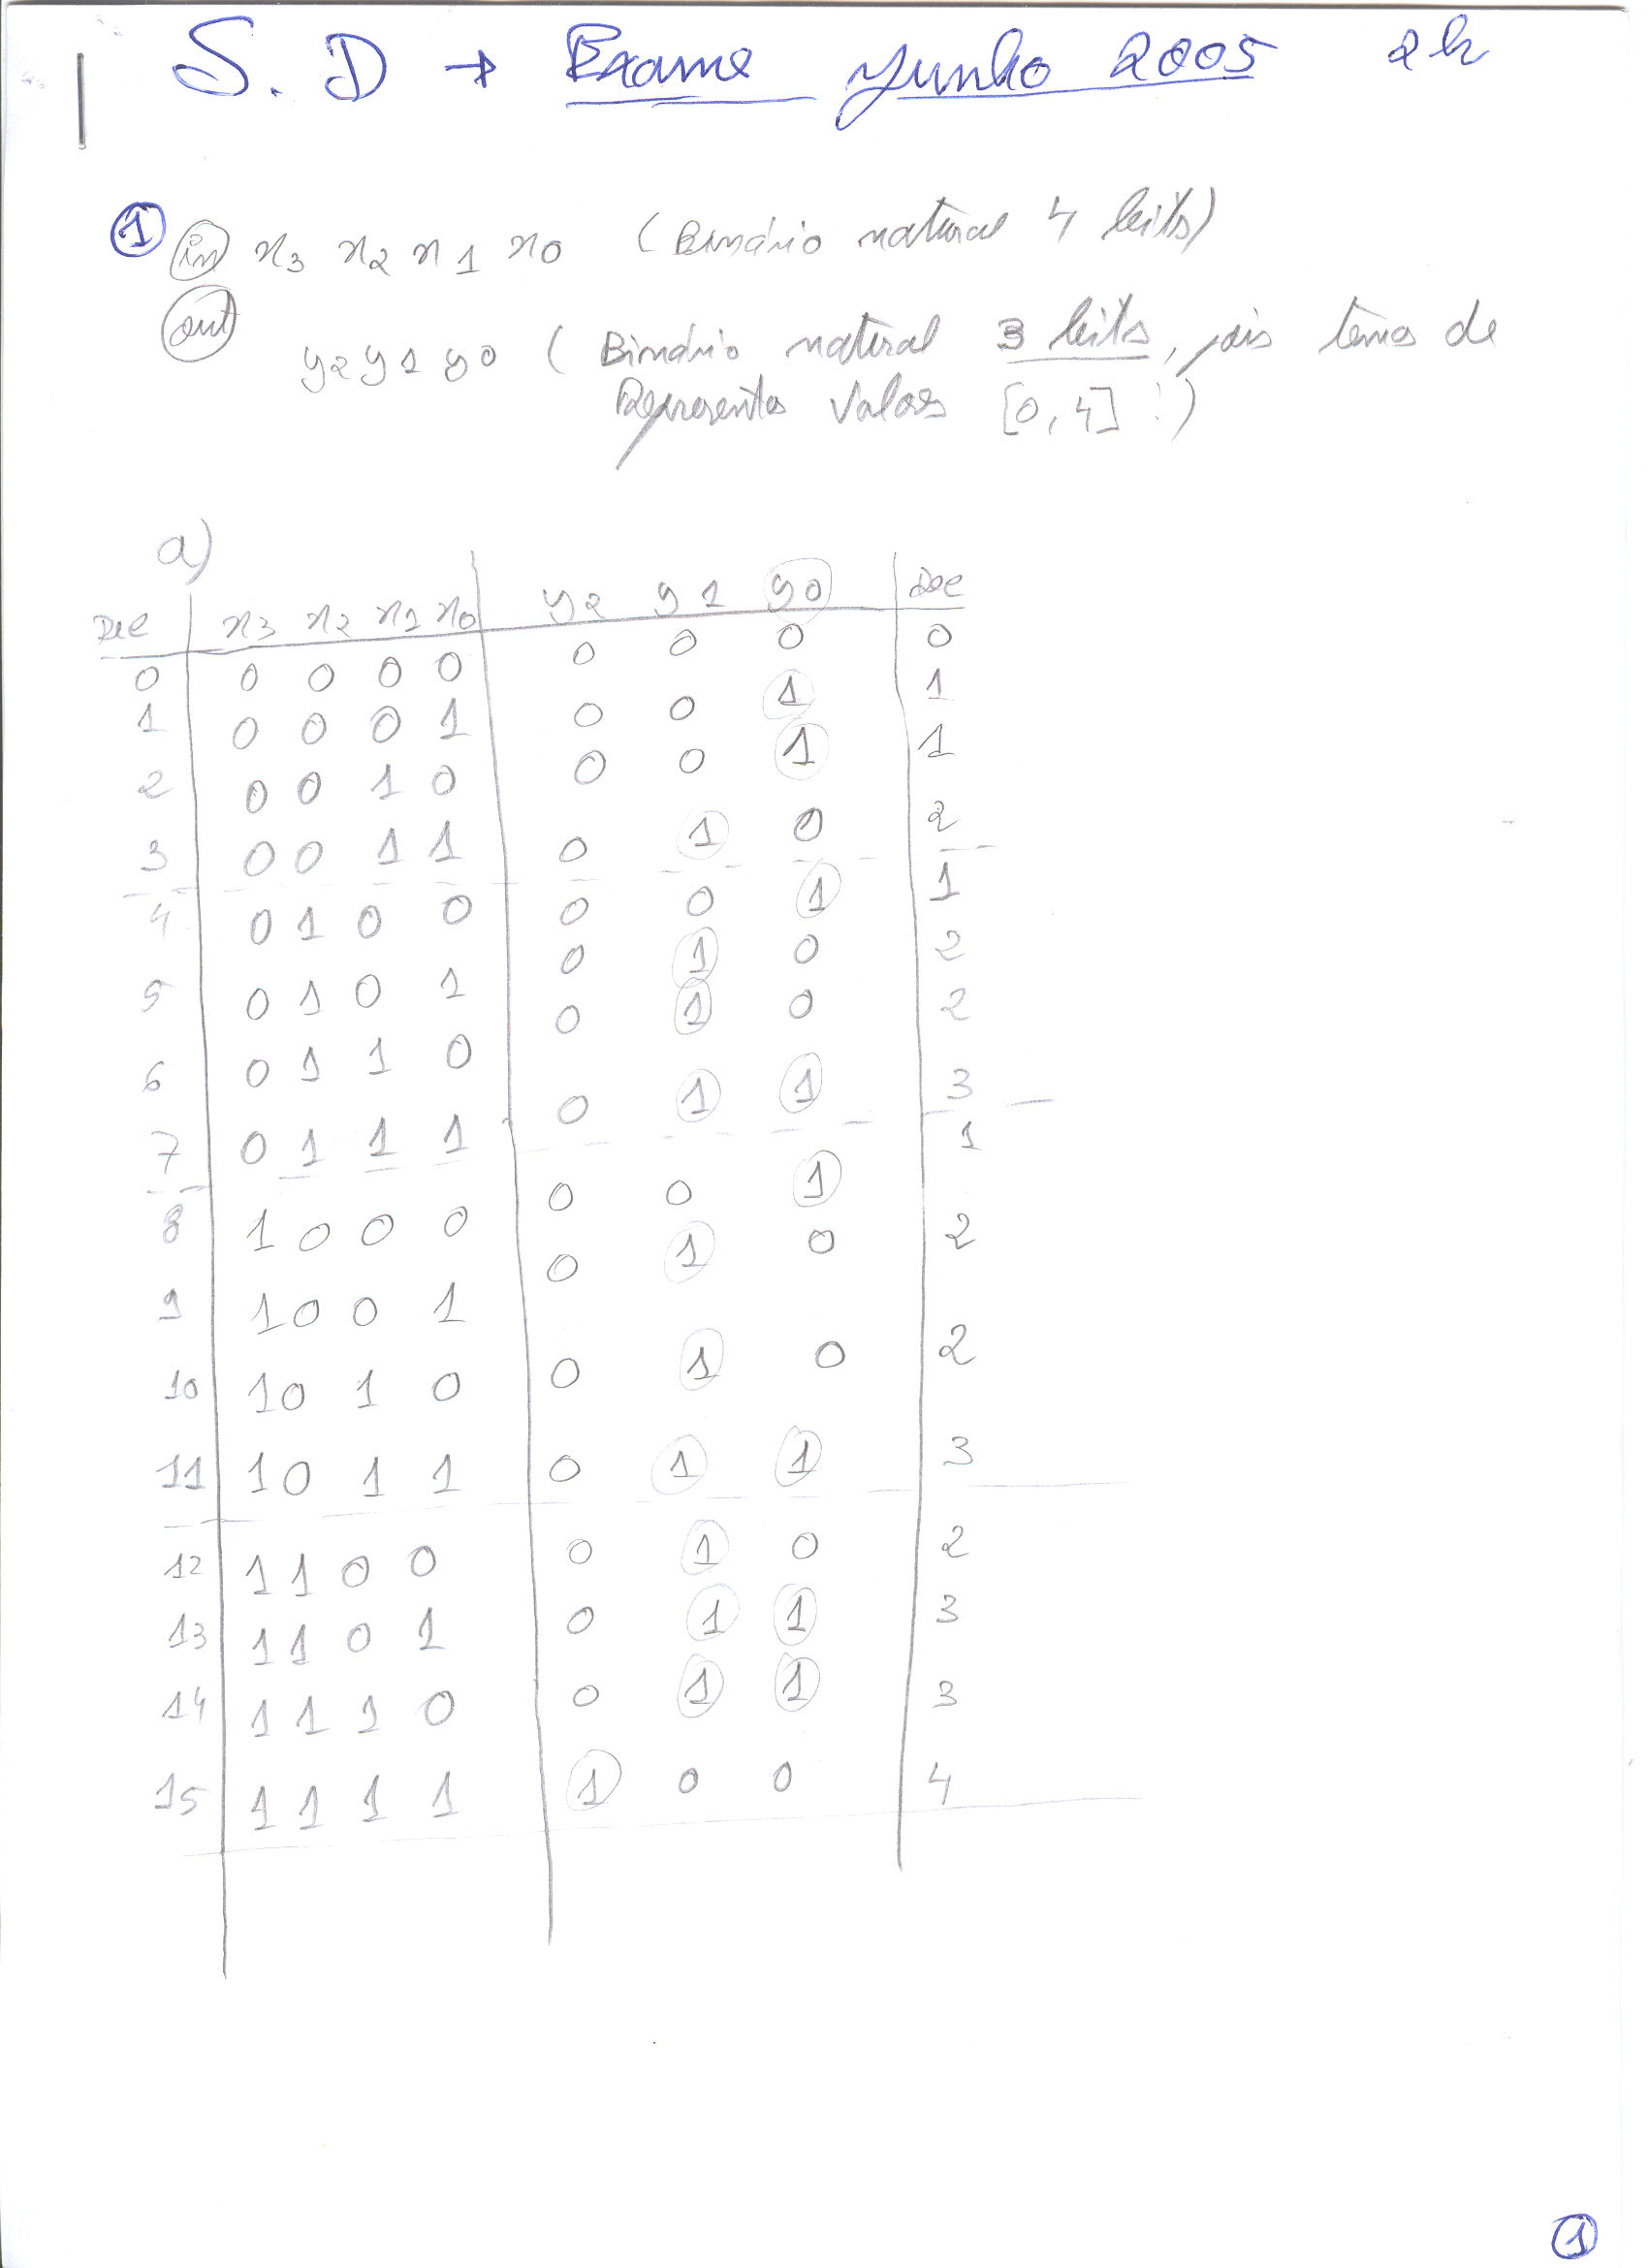 S.D → Exame Junho 2005 2h
1 in x3 x2 x1 x0 (Binário natural 4 bits)
out y2 y1 y0 (Binário natural 3 bits, pois temos de
Representar valores [0,4]!)
a)
Dec x3 x2 x1 x0 y2 y1 y0 Dec
0 0 0 0 0 0 0 0 0
1 0 0 0 1 0 0 1 1
2 0 0 1 0 0 0 1 1
3 0 0 1 1 0 1 0 2
4 0 1 0 0 0 0 1 1
5 0 1 0 1 0 1 0 2
6 0 1 1 0 0 1 0 2
7 0 1 1 1 0 1 1 3
8 1 0 0 0 0 0 1 1
9 1 0 0 1 0 1 0 2
10 1 0 1 0 0 1 0 2
11 1 0 1 1 0 1 1 3
12 1 1 0 0 0 1 0 2
13 1 1 0 1 0 1 1 3
14 1 1 1 0 0 1 1 3
15 1 1 1 1 1 0 0 4
1